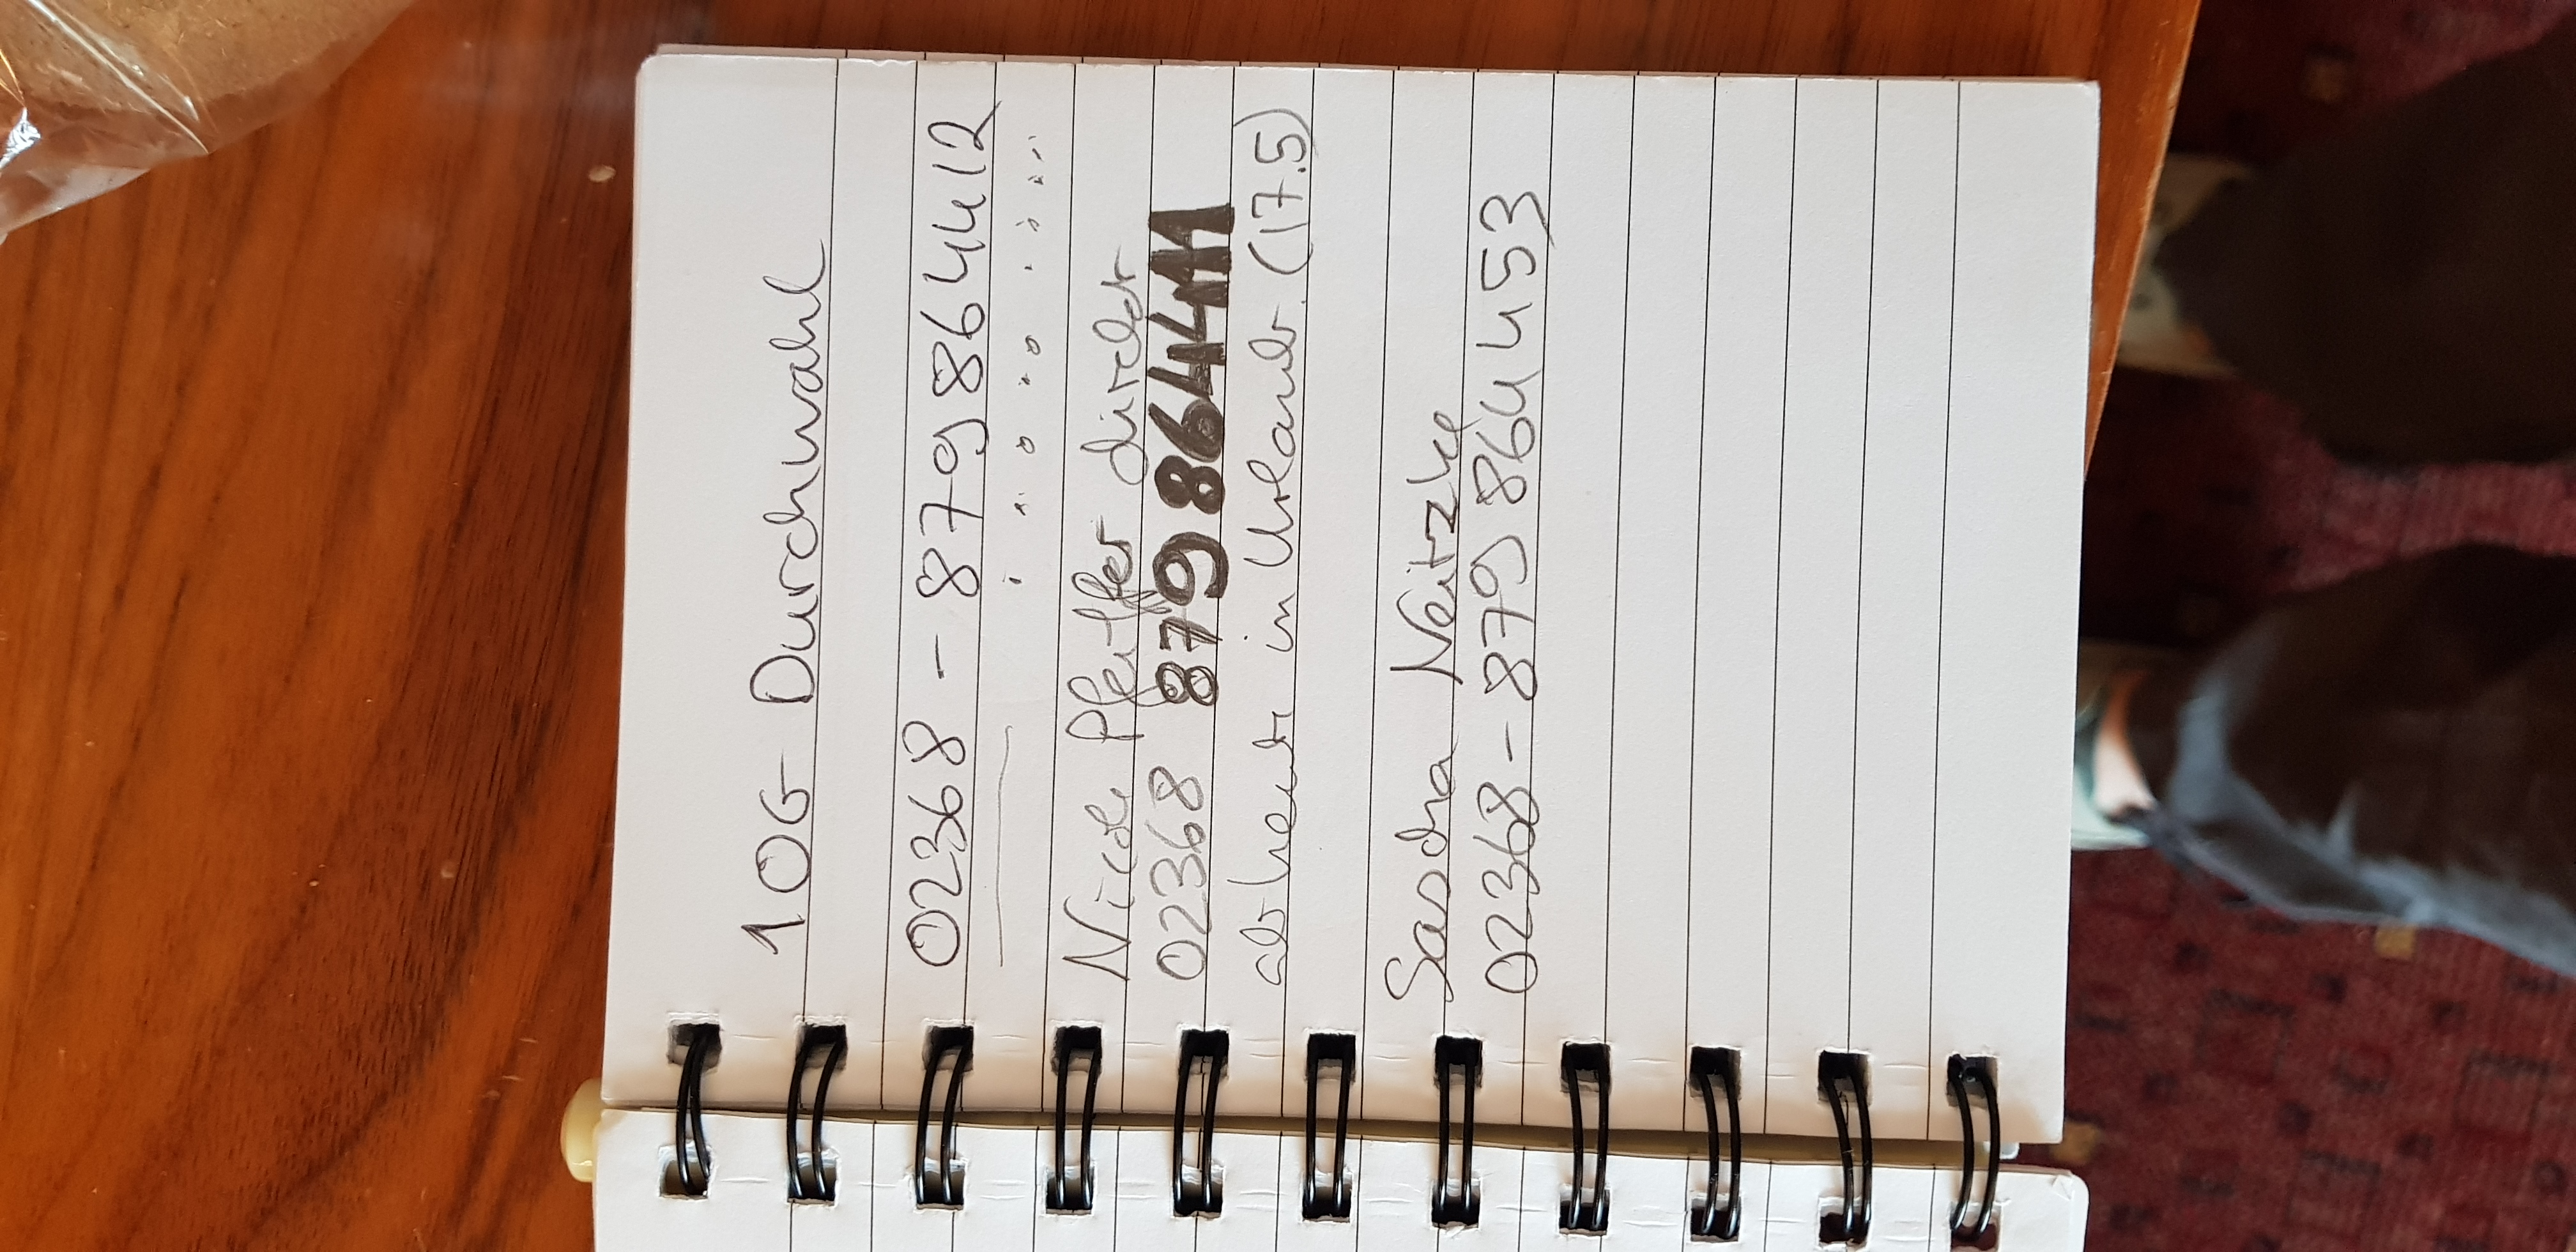 1OG Durchwahl
02368 - 8798644412
Nicole Pfeiffer direkt
02368 8798644411
ab heut in Urlaub (17.5)
Sasdra Neitzke
02368 - 879864453